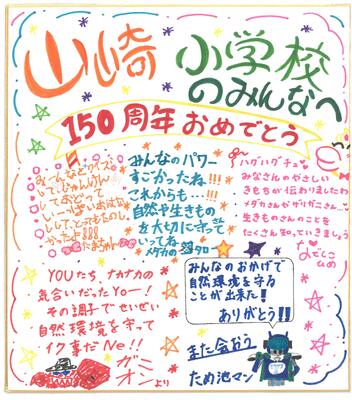 山崎 小学校
のみんなへ
150周年おめでとう
みんなのパワー
すごかったね!!!
これからも…!!!
自然や生きもの
を大切に守って
いってね
メダカのタロー
ハグハグチュ♡
みなさんのやさしい
きもちが伝わりましたわ
メダカさんやザリガニさん…
生きものさんのことを
たくさん知っていきましょう
なでしこ
ひめ
クイズ
じゃんけん
おどって
YOUたち ナカナカの
気合いだったYo−!
その調子でせいぜい
自然環境を守って
イク事だNe!!
ガニオンより
みんなのおかげで
自然環境を守る
ことが出来た!
ありがとう!!
また会おう
ため池マン